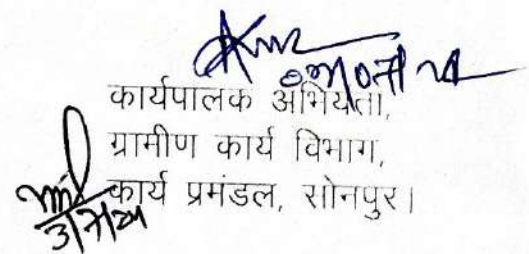 कार्यपालक अभियंता,
ग्रामीण कार्य विभाग,
कार्य प्रमंडल, सोनपुर।
3/7/24